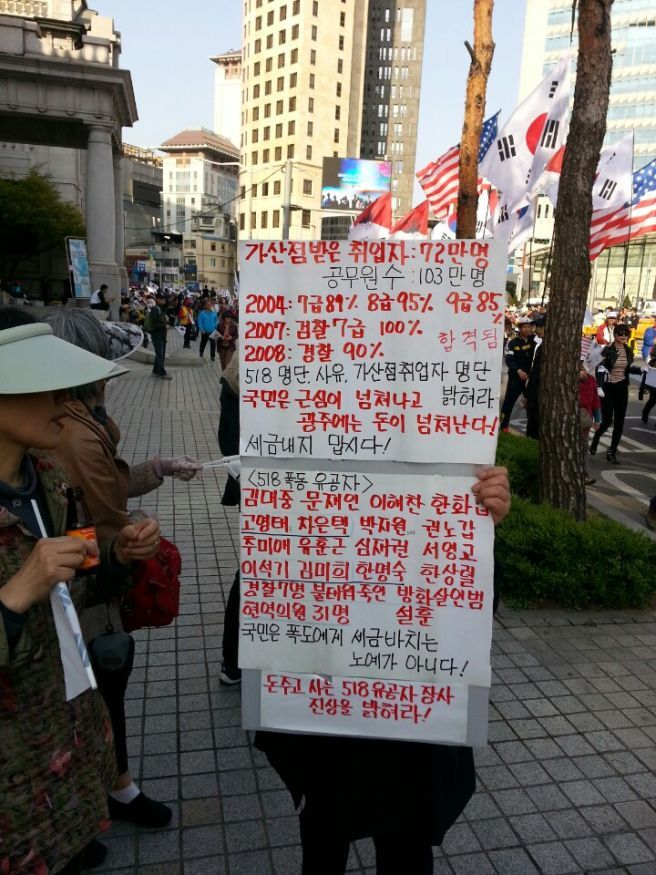 가산점받은 취업자 : 72만명
공무원수 : 103만명
2004 : 7급 89% 8급 95% 9급 85%
2007 : 검찰 7급 100%
합격됨
2008 : 경찰 90%
518 명단, 사유, 가산점취업자 명단
밝혀라.
국민은 근심이 넘쳐나고
광주에는 돈이 넘쳐난다!
세금내지 맙시다!
<518 폭동 유공자>
김대중 문재인 이해찬 한화갑
고영태 차은택 박지원 권노갑
추미애 유훈근 심재권 서영교
이석기 김미희 한명숙 한상렬
경찰7명 불태워죽인 방화살인범
현역의원 31명 설훈
국민은 폭도에게 세금바치는
노예가 아니다!
돈주고 사는 518유공자 장사
진상을 밝혀라!